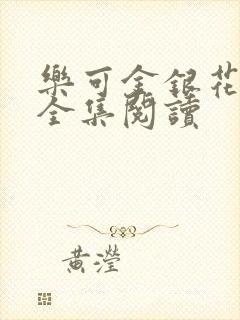 樂可金銀花
全集閱讀
黃瀅